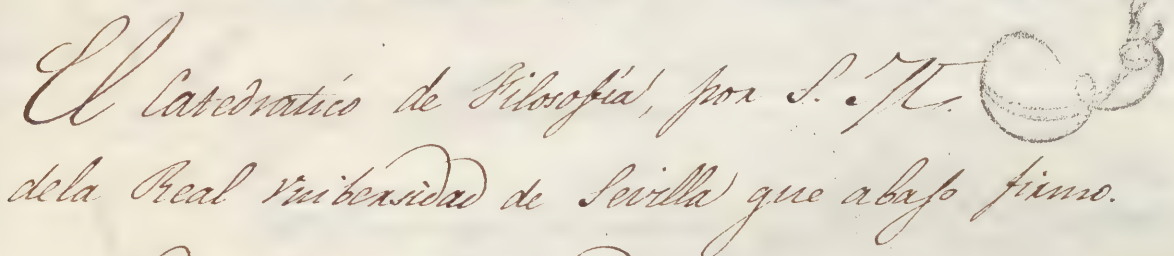 El Catedratico de Filosofía, por S. M.
dela Real Vnibersidad de Sevilla que abajo firmo.